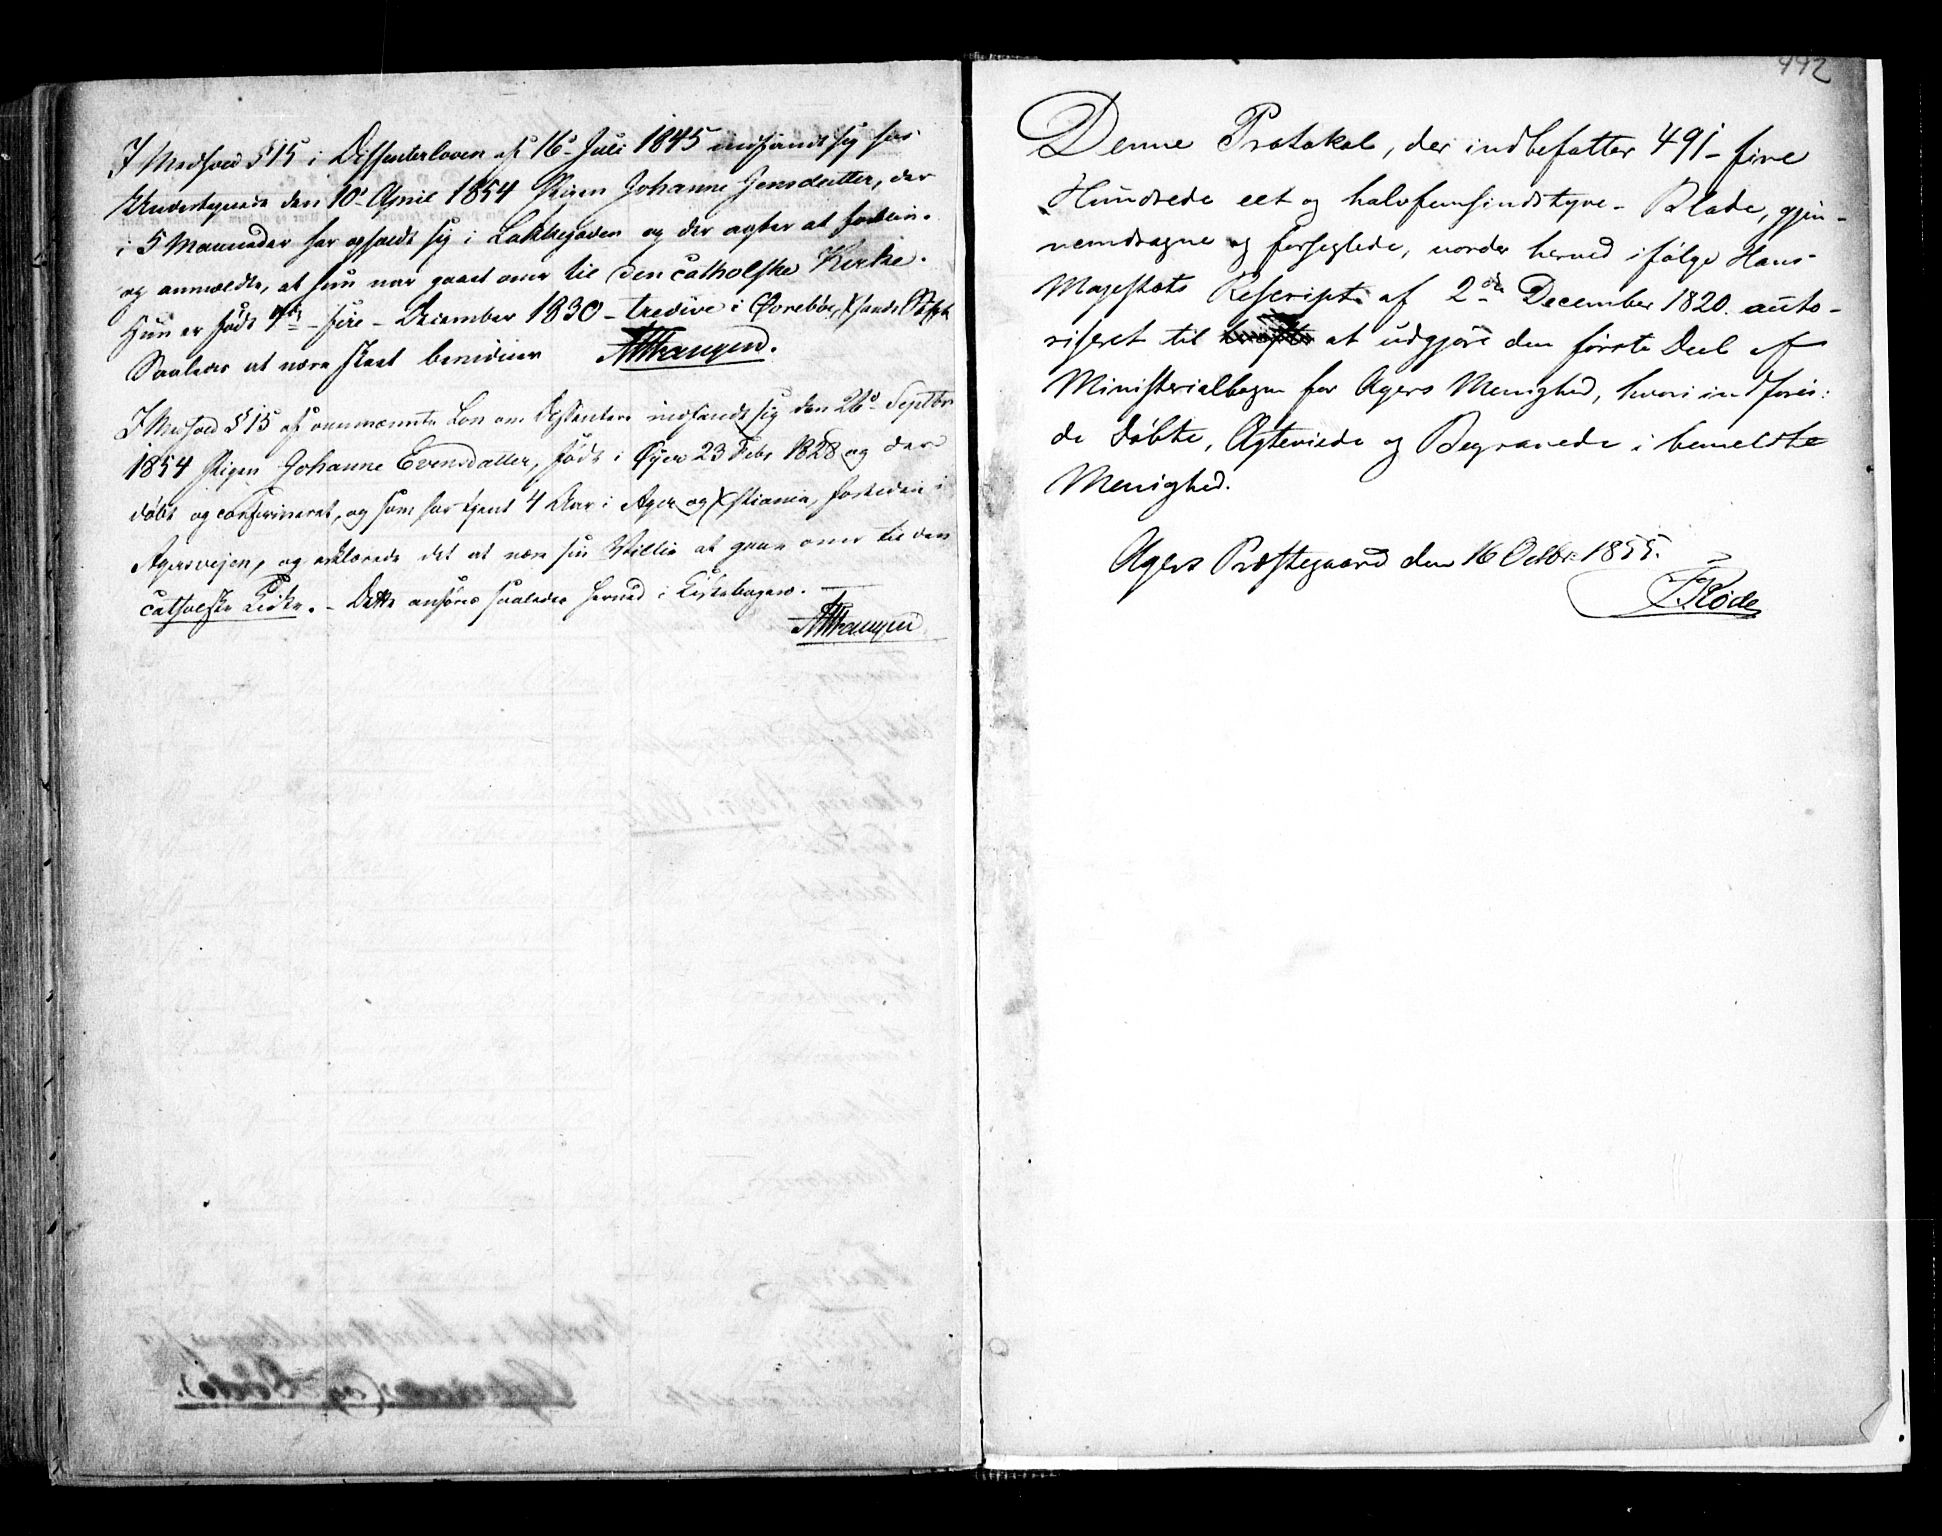 I Medhold § 15 i Dissenterloven af 16de Juli 1845 indfandt sig hos
Undertegnede den 10de April 1854 Pigen Johanne Jensdatter, der
i 5 Maaneder har opholdt sig i Lakkegaden og der agter at forblive
og anmeldte, at hun var gaaet over til den catholske Kirke.
Hun er født 4de - fire - December 1830 - tredive i
Saaledes at være skeet bevidner
I Medhold § 15 af ovennævnte Lov om Dissentere indfandt sig den 26de Septbr
1854 Pigen Johanne Evensdatter, født i Øyer 23 Febr 1828 og der
døbt og confirmeret, og som har tjent 4 Aar i Ager og Xstiania, for tiden i
Agersvejen, og erklærede det at være sin Villie at gaae over til den
catholske Kirke. - Dette anføres saaledes herved i Kirkebogen.
442
Denne Protokol, der indbefatter 491 - fire
Hundrede eet og halvfemsindstyve - Blade, gjen-
nemdragne og forseglede, vorder herved ifølge Hans
Majestæts Rescript af 2den December 1820. auto-
riseret til at udgjøre den første Deel af
Ministerialbogen for Agers Menighed, hvori indføres:
de Døbte, Ægteviede og Begravede i bemeldte
Menighed.
Agers Præstegaard den 16 Octbr 1855.